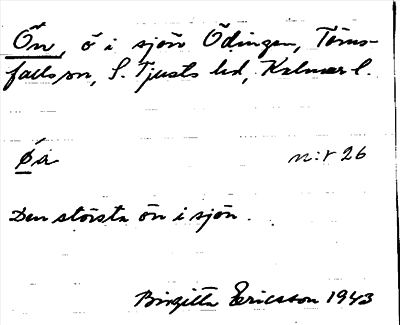 Ön, ö i sjön Ödingen, Törns-
falls sn, S. Tjusts hd, Kalmar l.
Öa n:r 26
Den största ön i sjön.
Birgitta Ericsson 1943